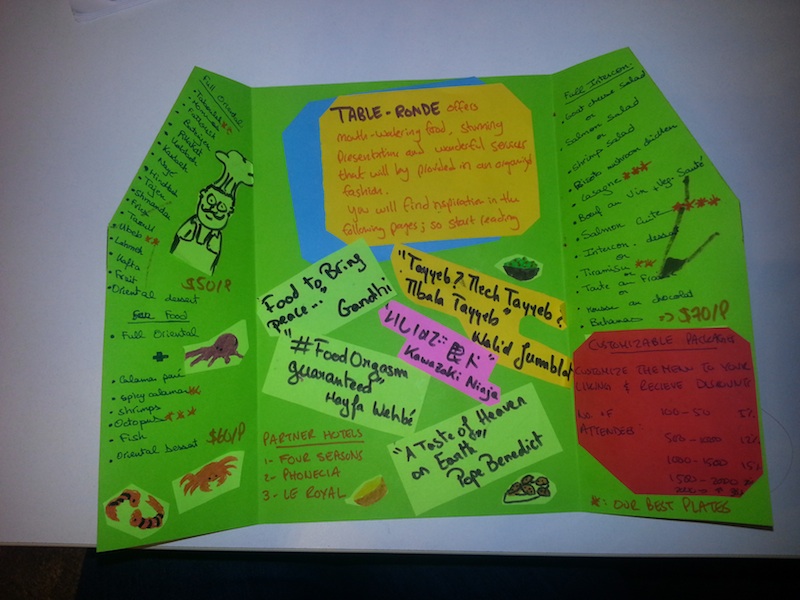 Full Oriental
Tabouleh
Hommos
Batinjen
Kebbeh
Hindbeh
Tajen
Shmandar
Taouk
Kafta
Fruit
Oriental dessert
$50/P
Sea Food
Full Oriental
+
Calama pané
spicy calamar
shrimps
Octopus ***
Fish
Oriental dessert
$60/P
TABLE-RONDE offers
mouth-watering food, stunning
presentation and wonderful services
that will by provided in an organized
fashion.
you will find inspiration in the
following pages; so start reading
Food to Bring
peace..."
Gandhi
"Tayyeb? Mech Tayyeb?
Mbala Tayyeb"
Walid Jummblat
Kawazaki Ninja
"#FoodOrgasm
guaranteed"
Hayfa Wehbé
"A Taste of Heaven
on Earth"
Pope Benedict
PARTNER HOTELS
1- FOUR SEASONS
2- PHONECIA
3- LE ROYAL
Full Intercon.
Goat cheese salad
or
Salmon salad
or
shrimps salad
Risoto mushroom chicken
Lasagne ***
Beof au Vin + Veg. Sauté
Salmon Cuite ****
Intercon. dessert
or
Tiramisu **
or
or
Mousse au chocolat
or
=> $70/P
CUSTOMIZABLE PACKAGES
CUSTOMIZE THE MENU TO YOUR
LIKING & RECIEVE DISCOUNTS
No. OF
ATTENDEES:
12%
1000-1500 15%
1500-2000
*: OUR BEST PLATES